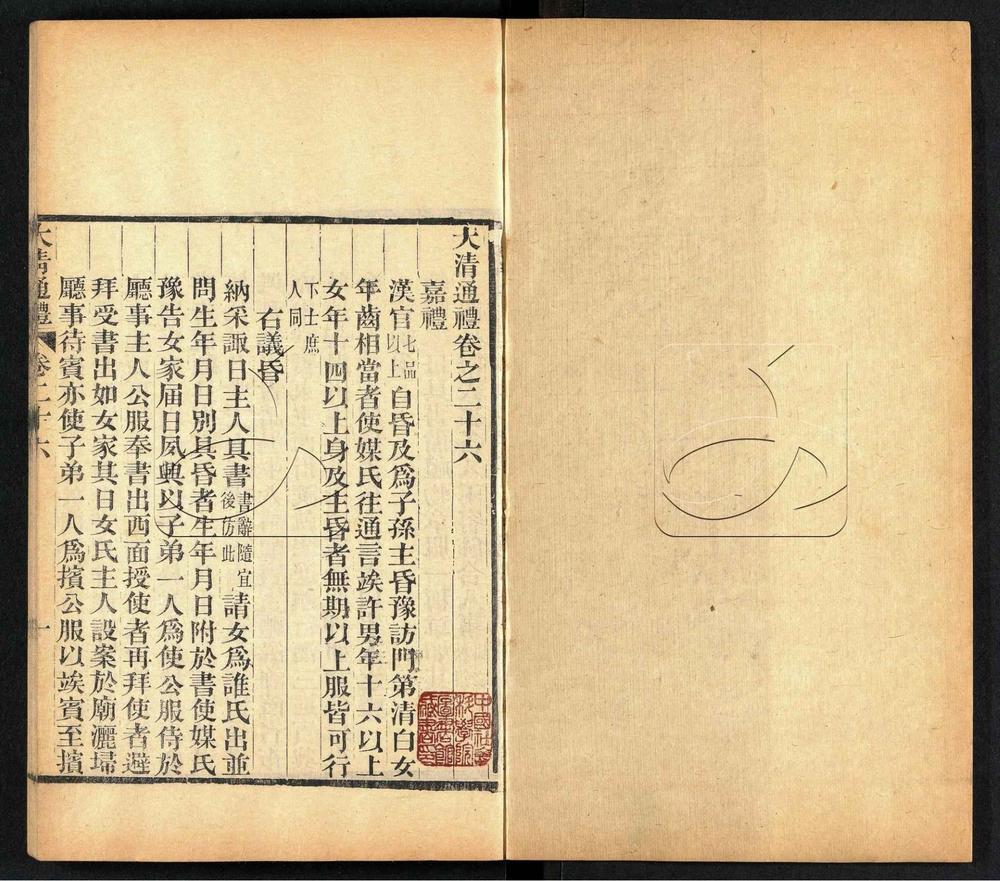 大清通禮卷之二十六
嘉禮
漢官七品以上自昏及爲子孫主昏豫訪門第清白女
年齒相當者使媒氏往通言竢許男年十六以上
女年十四以上身及主昏者無期以上服皆可行
下士庶人同
右議昏
納采諏日主人具書書辭隨宜後仿此請女爲誰氏出並
問生年月日別具昏者生年月日附於書使媒氏
豫告女家届日夙興以子弟一人爲使公服侍於
廳事主人公服奉書出西面授使者再拜使者避
拜受書出如女家其日女氏主人設案於廟灑埽
廳事待賓亦使子弟一人爲擯公服以竢賓至擯
大清通禮 卷二十六 一
中國社
科學院